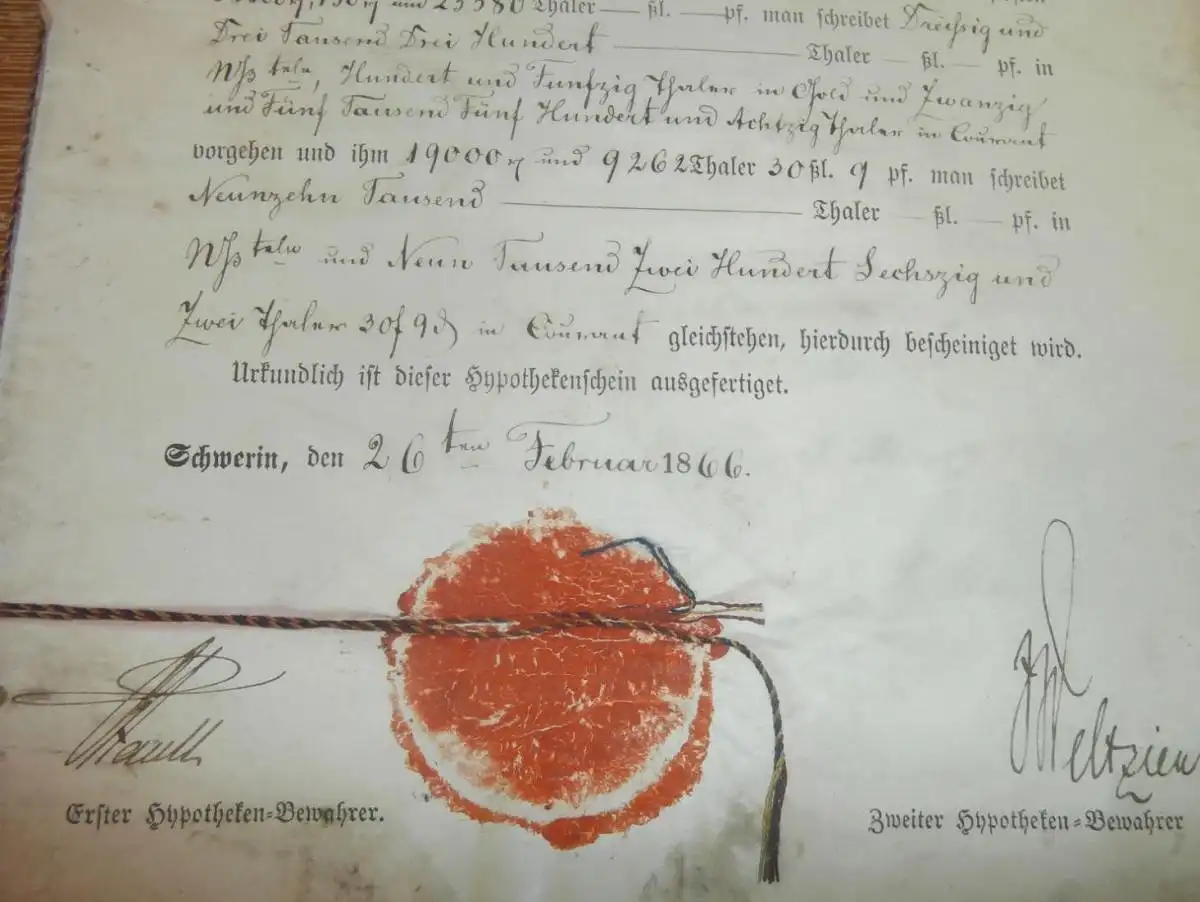 und 25580 Thaler — ßl. — pf. man schreibet Dreissig und
Drei Tausend Drei Hundert — Thaler — ßl. — pf. in
Hundert und Funfzig Thaler in Gold und Zwanzig
und Fünf Tausend Fünf Hundert und Achtzig Thaler in Courant
vorgehen und ihm 19000 und 9262 Thaler 30 ßl. 9 pf. man schreibet
Neunzehn Tausend — Thaler — ßl. — pf. in
und Neun Tausend Zwei Hundert Sechszig und
Zwei Thaler 30 ß 9 in Courant gleichstehen, hierdurch bescheiniget wird.
Urkundlich ist dieser Hypothekenschein ausgefertiget.
Schwerin, den 26ten Februar 1866.
Weltzien
Erster Hypotheken-Bewahrer.
Zweiter Hypotheken-Bewahrer